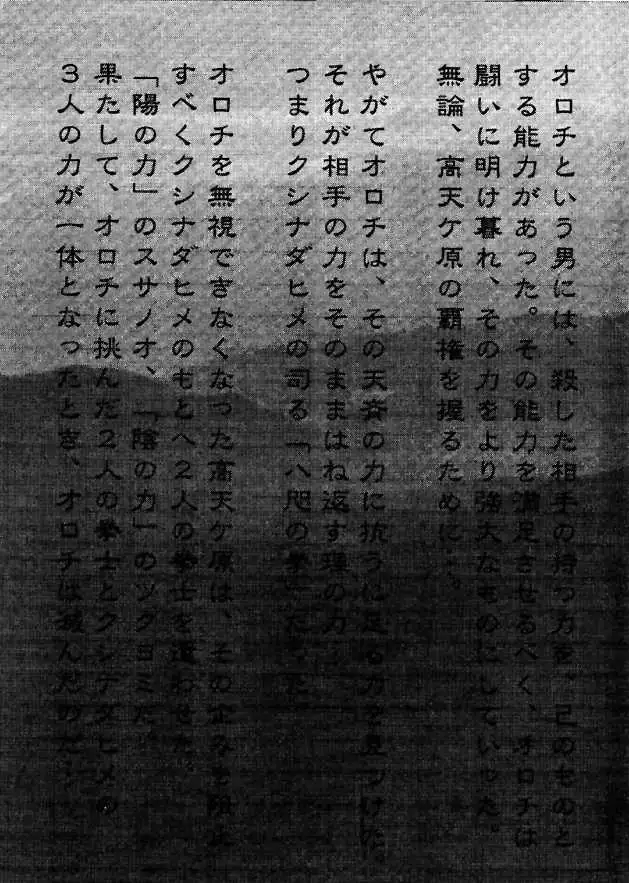 オロチという男には、殺した相手の持つ力を、己のものと
する能力があった。その能力を満足させるべく、オロチは
闘いに明け暮れ、その力をより強大なものにしていった。
無論、高天ケ原の覇権を握るために…。
やがてオロチは、その天賚の力に抗うに足る力を見つけた。
それが相手の力をそのままはね返す理の力…
つまりクシナダヒメの司る「八咫の拳」だった。
オロチを無視できなくなった高天ケ原は、その企みを阻止
すべくクシナダヒメのもとへ2人の拳士を遣わせた。
「陽の力」のスサノオ、「陰の力」のツクヨミだ。
果たして、オロチに挑んだ2人の拳士とクシナダヒメの
3人の力が一体となったとき、オロチは滅んだのだ…。